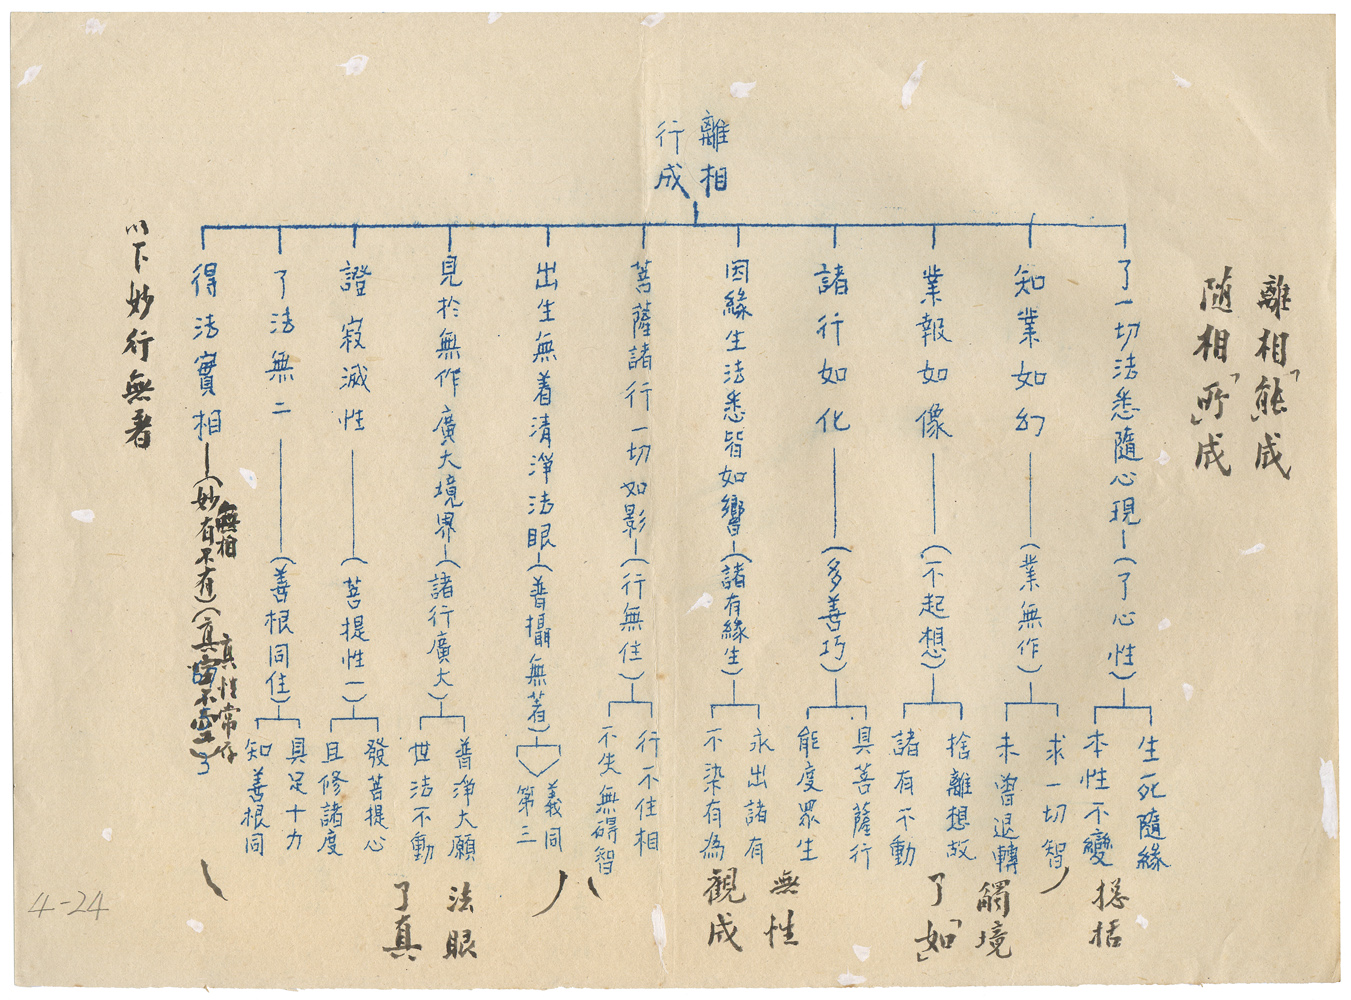 離相
行成
離相「能」成
隨相「所」成
了一切法悉隨心現—(了心性)
生死隨緣
本性不變
知業如幻—(業無作)
求一切智
未曾退轉
業報如像—(不起想)
捨離想故
諸有不動
諸行如化—(多善巧)
具菩薩行
能度眾生
因緣生法悉皆如響—(諸有緣生)
永出諸有
不染有為
菩薩諸行一切如影—(行無住)
行不住相
不失無碍智
出生無着清淨法眼—(普攝無著)
義同
第三
見於無作廣大境界—(諸行廣大)
普淨大願
世法不動
證寂滅性—(菩提性一)
發菩提心
且修諸度
了法無二—(善根同住)
具足十力
知善根同
得法實相—(妙有不有)(真空不空)
無相
真性常存
以下妙行無著
總括
觸境
了「如」
無性
觀成
法眼
了真
4-24